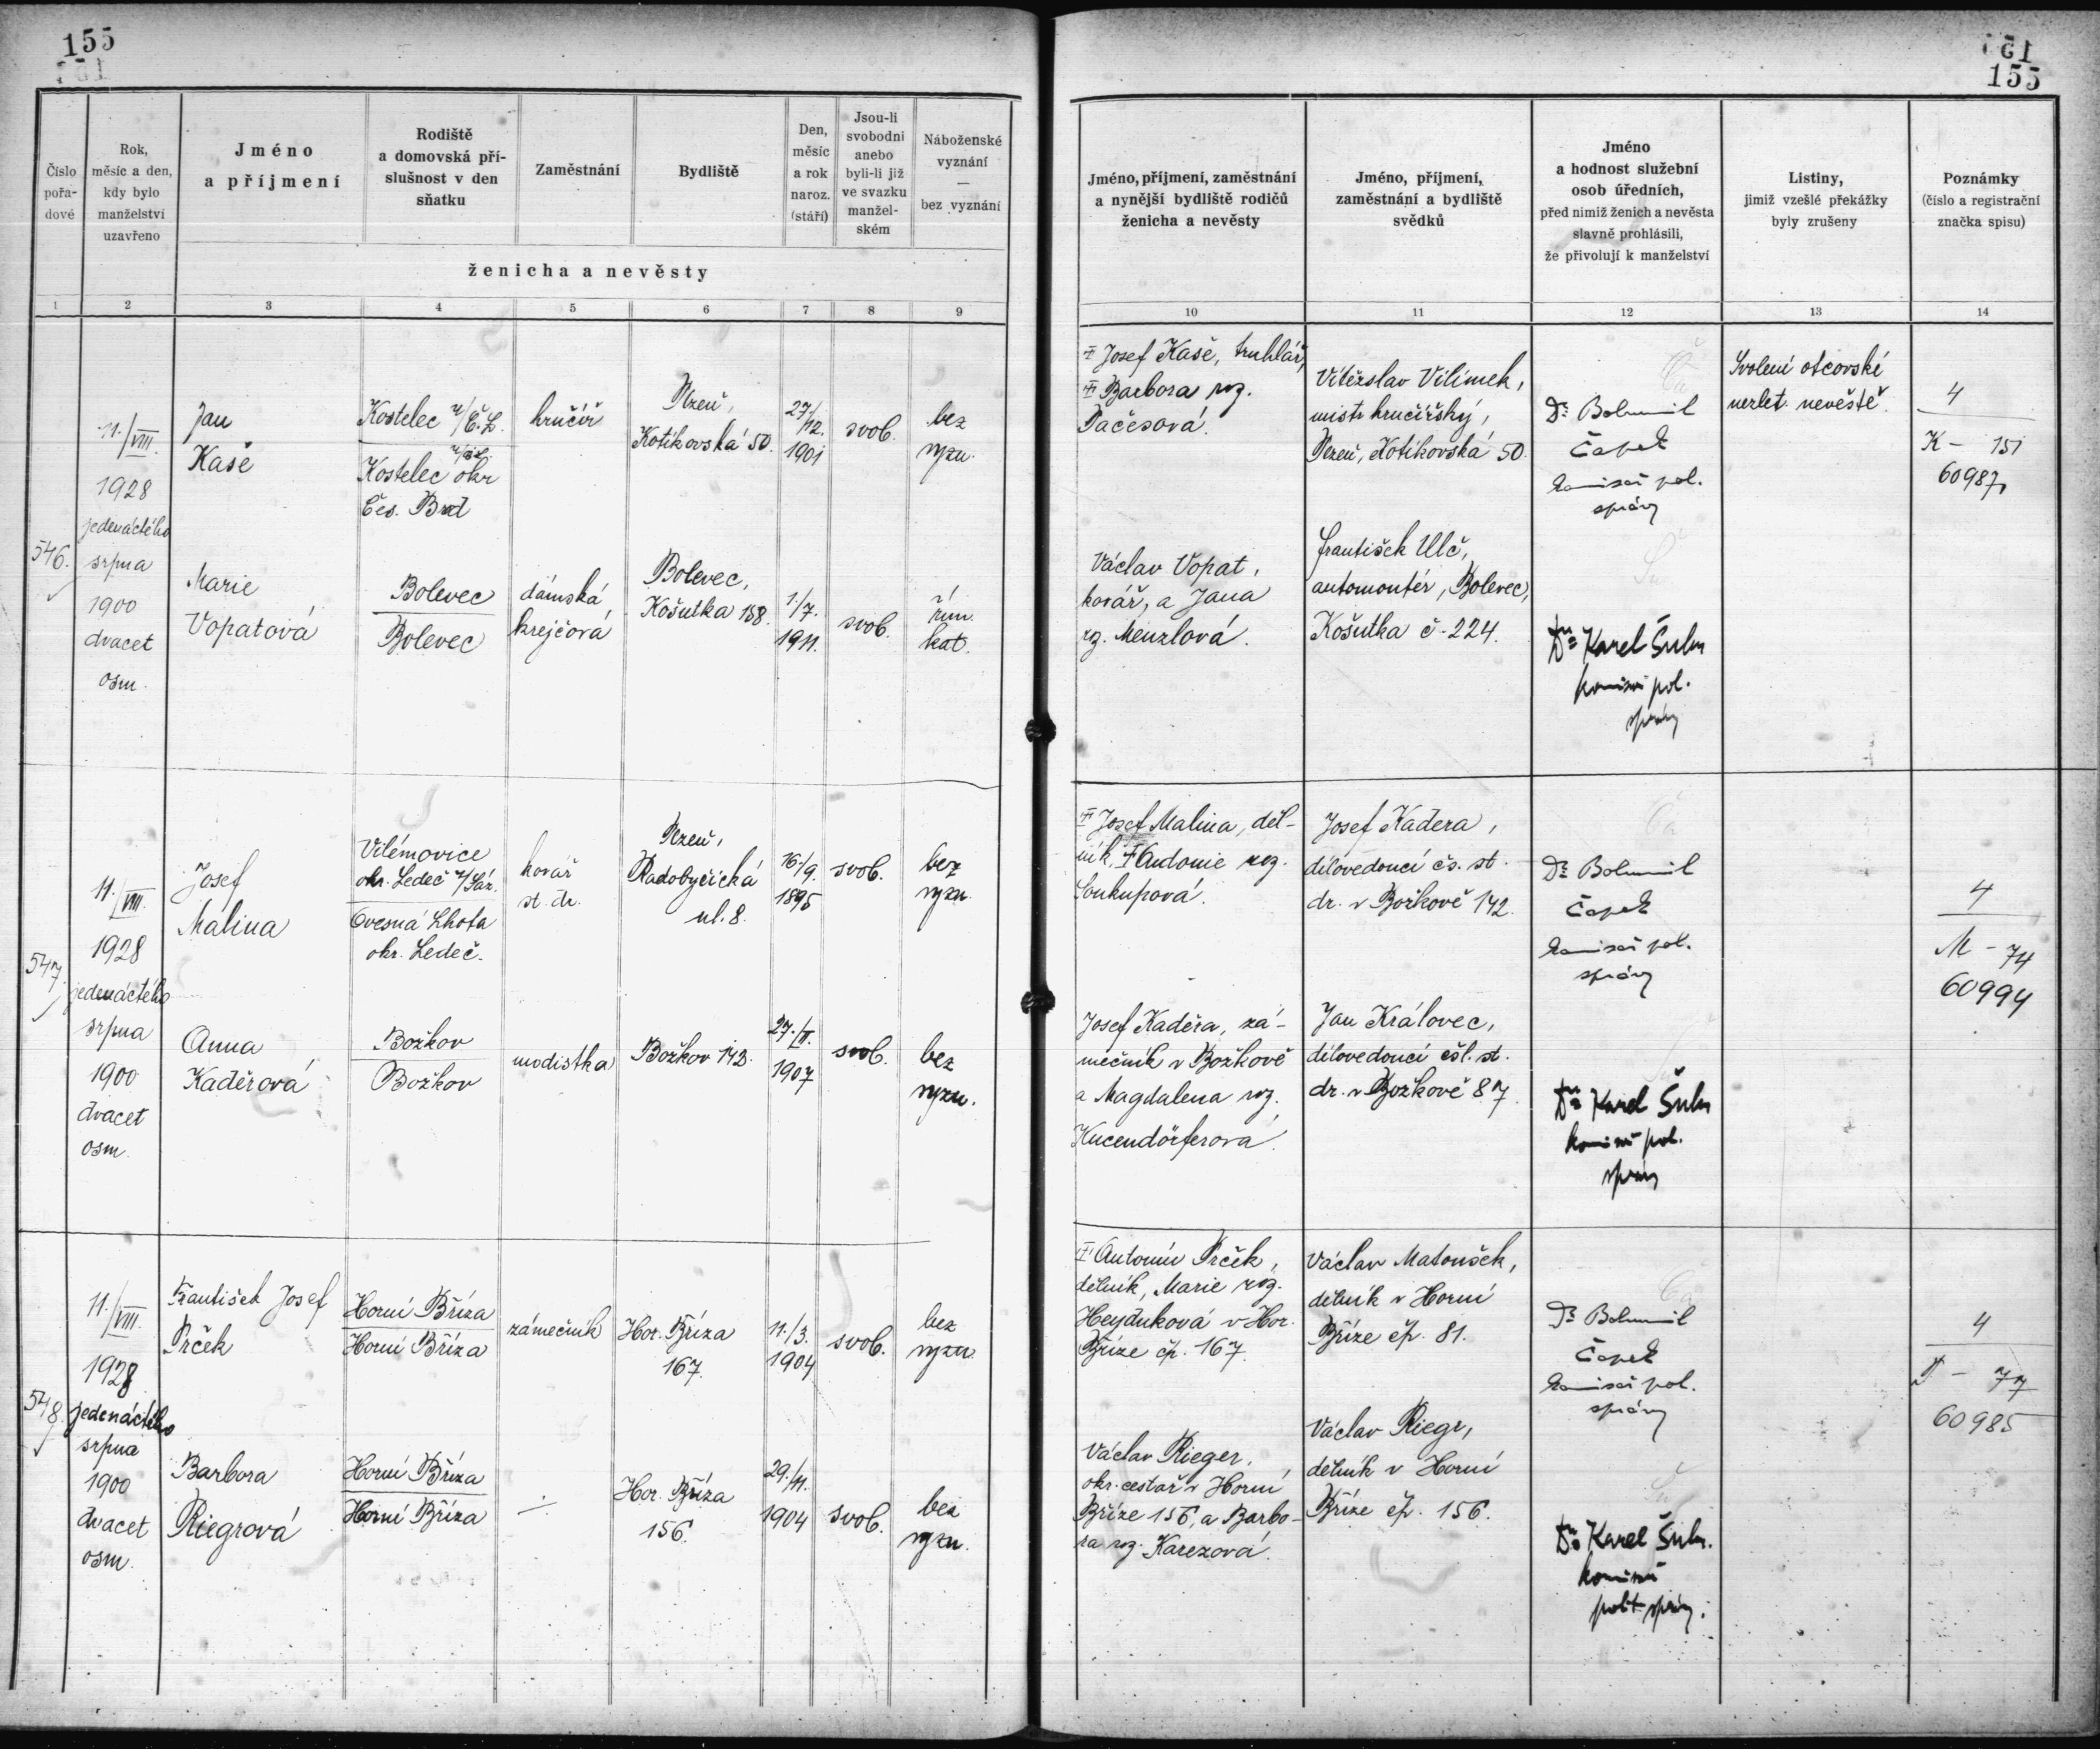 155
155
Číslo pořa-dové
Rok, měsíc a den, kdy bylo manželství uzavřeno
Jméno a příjmení
Rodiště a domovská pří-slušnost v den sňatku
Zaměstnání
Bydliště
Den, měsíc a rok naroz. (stáří)
Jsou-li svobodni anebo byli-li již ve svazku manžel-ském
Náboženské vyznání — bez vyznání
ženicha a nevěsty
Jméno, příjmení, zaměstnání a nynější bydliště rodičů ženicha a nevěsty
Jméno, příjmení, zaměstnání a bydliště svědků
Jméno a hodnost služební osob úředních, před nimiž ženich a nevěsta slavně prohlásili, že přivolují k manželství
Listiny, jimiž vzešlé překážky byly zrušeny
Poznámky (číslo a registrační značka spisu)
1 2 3 4 5 6 7 8 9 10 11 12 13 14
546.
11./VIII.
1928
jedenáctého
srpna
1900
dvacet
osm.
Jan
Kaše
Kostelec n/Č.L.
Kostelec okr
Čes. Brod
hručíř
Plzeň,
Kotíkovská 50.
27./12.
1901
svob.
bez
vyzn.
Marie
Vopatová
Bolevec
Bolevec
dámská
krejčová
Bolevec,
Košutka 158.
1./7.
1911.
svob.
řím.
kat.
Josef Kaše, truhlář,
Barbora roz.
Pačesová.
Václav Vopat,
kovář, a Jana
rz. Menzlová.
Vítězslav Vilímek,
mistr hručířský,
Plzeň, Kotíkovská 50.
František Ulč,
automontér, Bolevec,
Košutka č. 224.
Dr. Bohumil
Čapek
komisař pol.
správy
Dr. Karel Šulc
komisař pol.
správy
Svolení otcovské
nezlet. nevěstě.
4
K - 151
60987,
547.
11./VIII.
1928
jedenáctého
srpna
1900
dvacet
osm.
Josef
Malina
Vilémovice
okr. Ledeč n/Sáz.
Ovesná Lhota
okr. Ledeč.
kovář
st. dr.
Plzeň,
Radobyčická
ul. 8.
16./9.
1895
svob.
bez
vyzn.
Anna
Kaděrová
Božkov
Božkov
modistka
Božkov 142.
27./II.
1907
svob.
bez
vyzn.
Josef Malina, děl-
ník, Antonie roz.
Soukupová.
Josef Kaděra, zá-
mečník v Božkově
a Magdalena roz.
Kucendörferová.
Josef Kaděra,
dílovedoucí čs. st.
dr. v Božkově 142.
Jan Královec,
dílovedoucí čsl. st.
dr. v Božkově 87.
Dr. Bohumil
Čapek
komisař pol.
správy
Dr. Karel Šulc
komisař pol.
správy
4
M - 74
60994
548.
11./VIII.
1928
jedenáctého
srpna
1900
dvacet
osm.
František Josef
Prček
Horní Bříza
Horní Bříza
zámečník
Hor. Bříza
167.
11./3.
1904
svob.
bez
vyzn.
Barbora
Riegrová
Horní Bříza
Horní Bříza
Hor. Bříza
156.
29./11.
1904
svob.
bez
vyzn.
Antonín Prček,
dělník, Marie roz.
Hejduková v Hor.
Bříze čp. 167.
Václav Rieger,
okr. cestář v Horní
Bříze 156, a Barbo-
ra roz. Karezová.
Václav Matoušek,
dělník v Horní
Bříze čp. 81.
Václav Riegr,
dělník v Horní
Bříze čp. 156.
Dr. Bohumil
Čapek
komisař pol.
správy
Dr. Karel Šulc.
komisař
polit. správy.
4
P - 77
60985